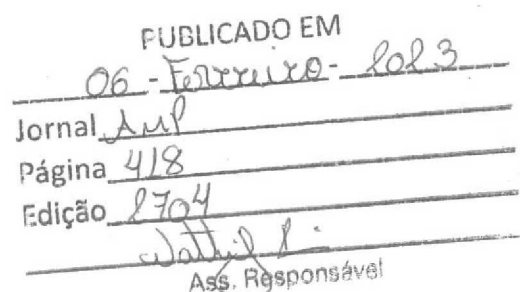 PUBLICADO EM
06 - Fevereiro - 2023
Jornal AMP
Página 418
Edição 2704
Ass. Responsável